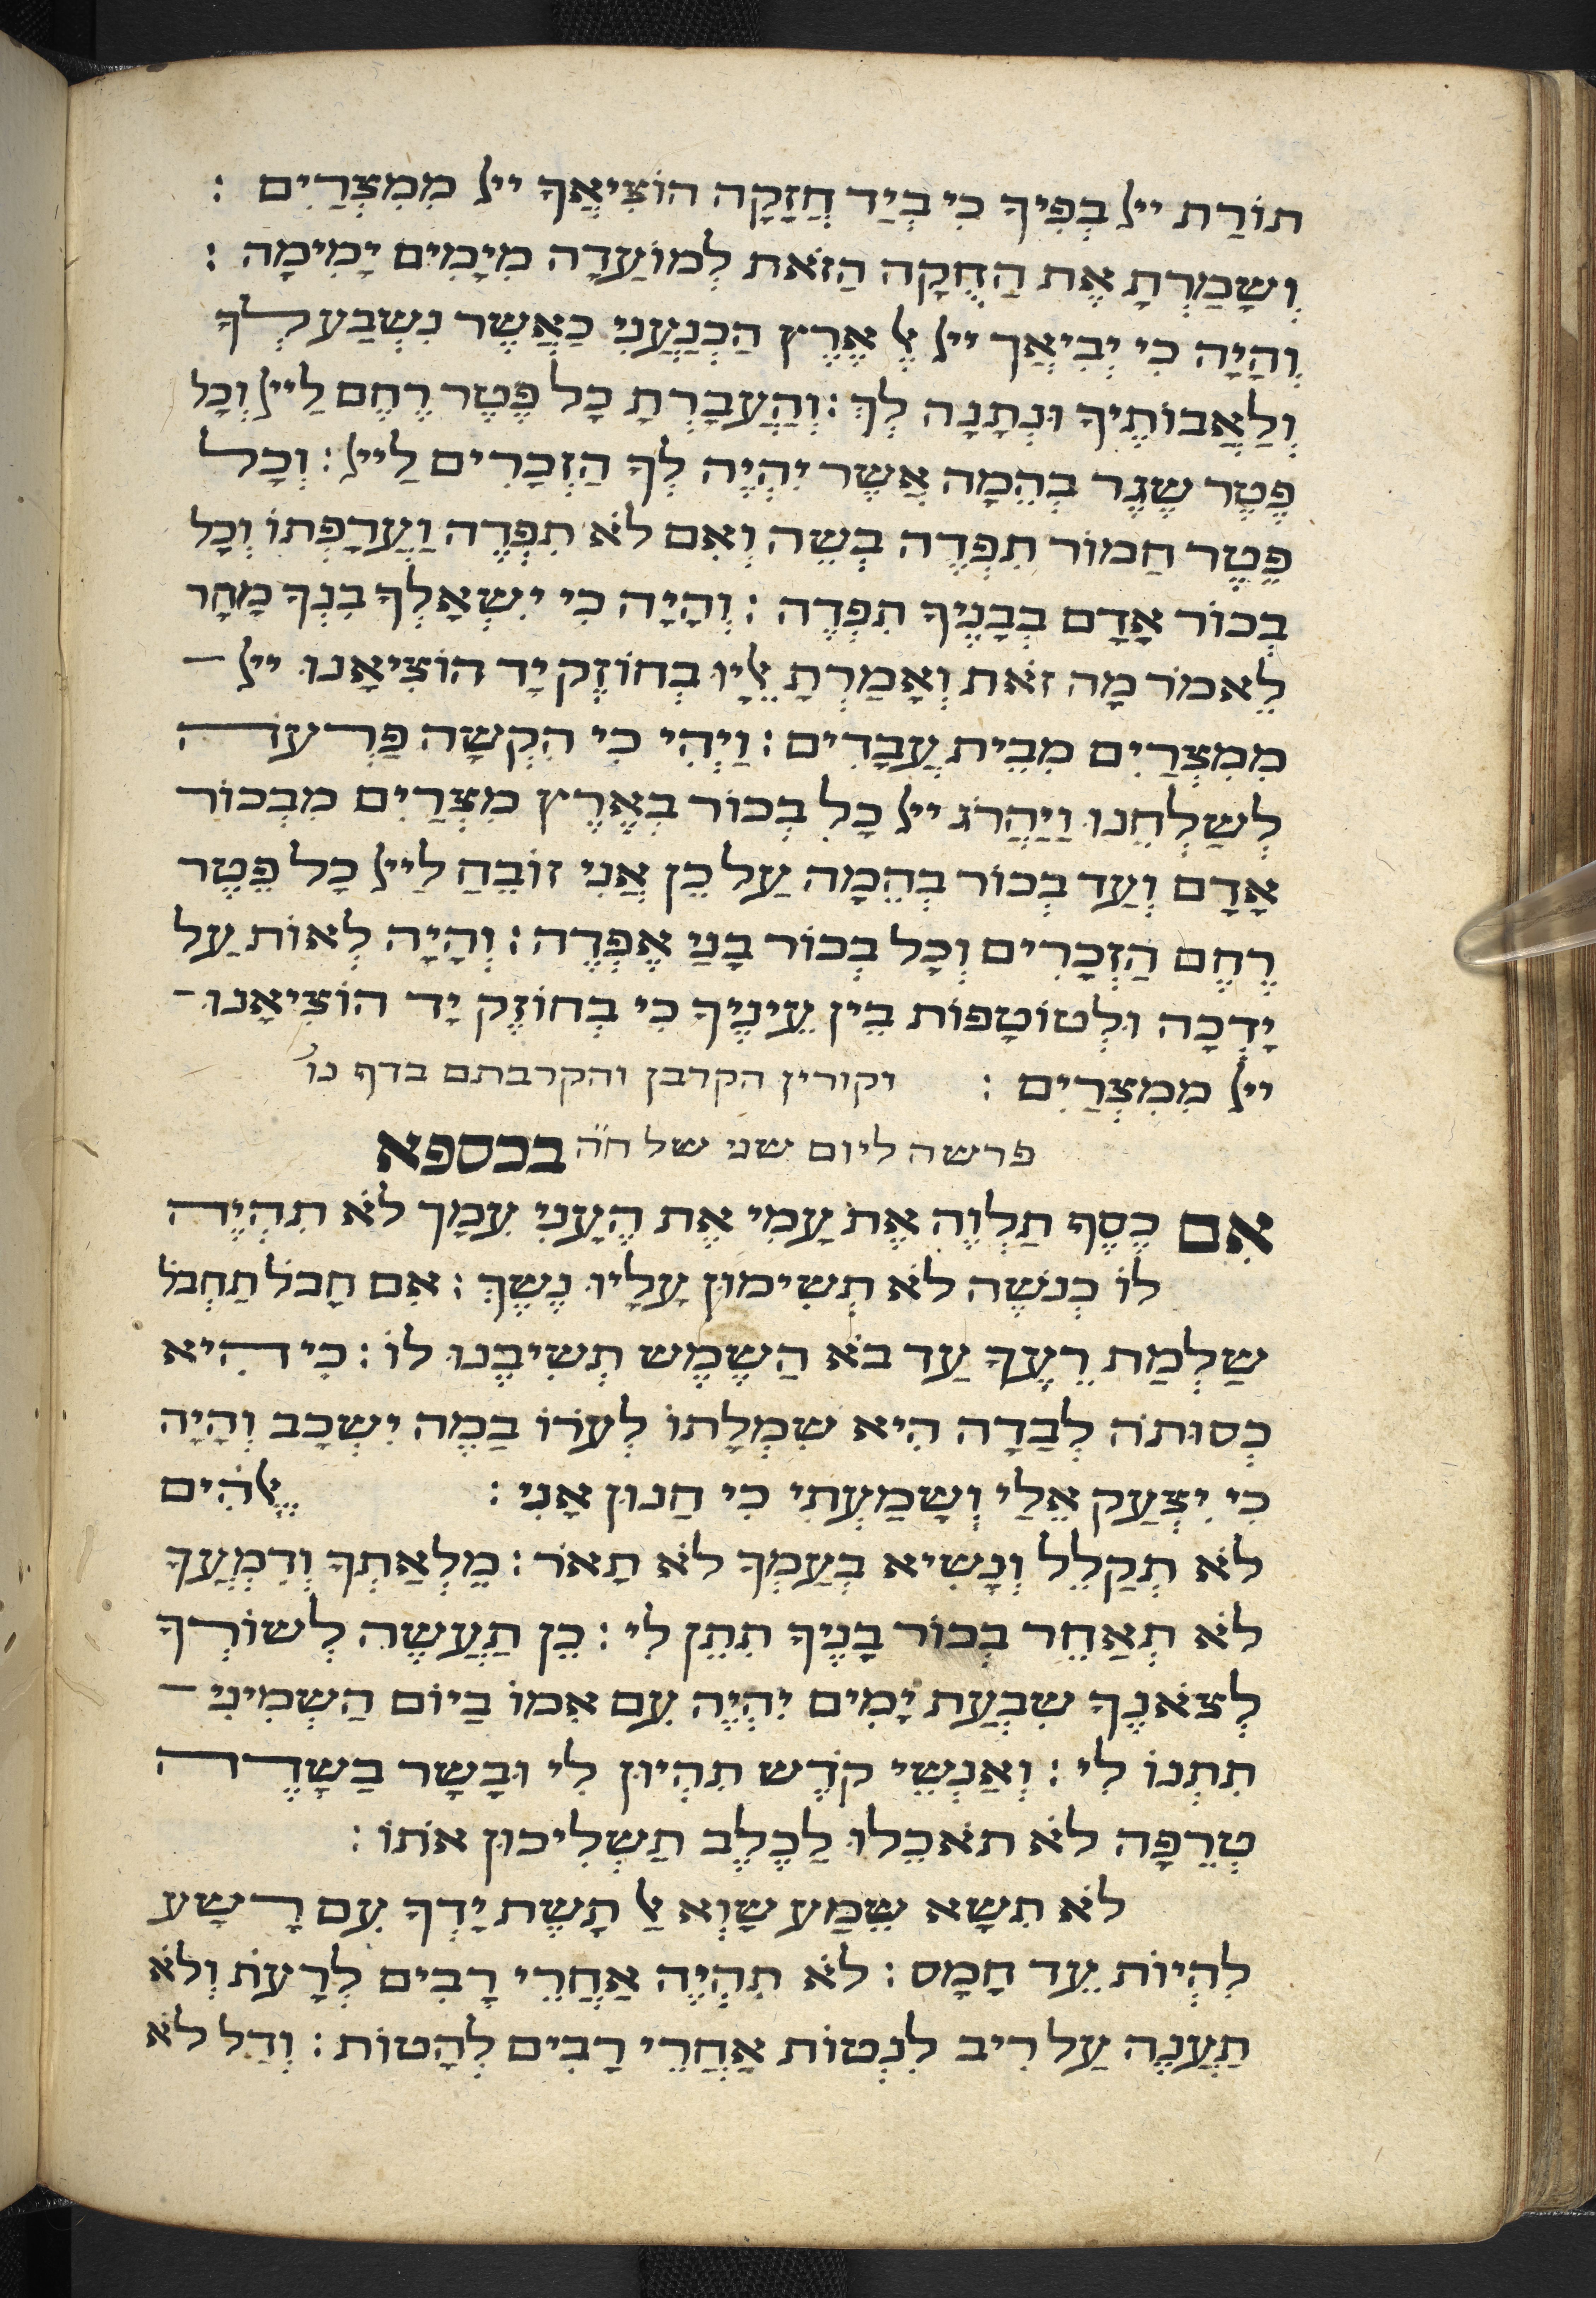 תוֹרַת ייל בְּפִיךָ כִּי בְּיַד חֲזָקָה הוֹצִיאֲךָ ייל מִמִּצְרַיִם :
וְשָׁמַרְתָּ אֶת הַחֻקָה הַזֹּאת לְמוֹעַדָהּ מִיָמִים יָמִימָה :
וְהָיָה כִּי יְבִיאֲךָ ייל אֶל אֶרֶץ הַכְּנַעֲנִי כַּאֲשֶׁר נִשְׁבַּע לְךָ
וְלַאֲבוֹתֶיךָ וּנְתָנָהּ לְךָ : וְהַעֲבַרְתָּ כָל פֶּטֶר רֶחֶם לַייל וְכָל
פֶּטֶר שֶׁגֶר בְּהֵמָה אֲשֶׁר יִהְיֶה לְךָ הַזְּכָרִים לַייל : וְכָל
פֶּטֶר חֲמוֹר תִּפְדֶּה בְשֶׂה וְאִם לֹא תִפְדֶּה וַעֲרַפְתּוֹ וְכָל
בְּכוֹר אָדָם בְּבָנֶיךָ תִּפְדֶּה : וְהָיָה כִּי יִשְׁאָלְךָ בִנְךָ מָחָר
לֵאמֹר מַה זֹּאת וְאָמַרְתָּ אֵלָיו בְּחוֹזֶק יָד הוֹצִיאָנוּ ייל
מִמִּצְרַיִם מִבֵּית עֲבָדִים : וַיְהִי כִּי הִקְשָׁה פַרְעֹה
לְשַׁלְּחֵנוּ וַיַהֲרֹג ייל כָּל בְּכוֹר בְּאֶרֶץ מִצְרַיִם מִבְּכוֹר
אָדָם וְעַד בְּכוֹר בְּהֵמָה עַל כֵּן אֲנִי זוֹבֵחַ לַייל כָּל פֶּטֶר
רֶחֶם הַזְּכָרִים וְכָל בְּכוֹר בָּנַי אֶפְדֶּה : וְהָיָה לְאוֹת עַל
יָדְכָה וּלְטוֹטָפוֹת בֵּין עֵינֶיךָ כִּי בְּחוֹזֶק יָד הוֹצִיאָנוּ
ייל מִמִּצְרַיִם : וקורין הקרבן והקרבתם בדף נו'
פרשה ליום שני של חה בכספא
אִם כֶּסֶף תַּלְוֶה אֶת עַמִּי אֶת הֶעָנִי עִמָּךְ לֹא תִהְיֶה
לוֹ כְּנֹשֶׁה לֹא תְשִׂימוּן עָלָיו נֶשֶׁךְ : אִם חָבֹל תַּחְבֹּל
שַׂלְמַת רֵעֶךָ עַד בֹּא הַשֶּׁמֶשׁ תְּשִׁיבֶנּוּ לוֹ : כִּי הִיא
כְסוּתֹה לְבַדָּהּ הִיא שִׂמְלָתוֹ לְעֹרוֹ בַּמֶּה יִשְׁכָּב וְהָיָה
כִּי יִצְעַק אֵלַי וְשָׁמַעְתִּי כִּי חַנּוּן אָנִי : אֱלֹהִים
לֹא תְקַלֵּל וְנָשִׂיא בְעַמְּךָ לֹא תָאֹר : מְלֵאָתְךָ וְדִמְעֲךָ
לֹא תְאַחֵר בְּכוֹר בָּנֶיךָ תִּתֵּן לִי : כֵּן תַּעֲשֶׂה לְשׁוֹרְךָ
לְצֹאנֶךָ שִׁבְעַת יָמִים יִהְיֶה עִם אִמּוֹ בַּיּוֹם הַשְּׁמִינִי
תִּתְּנוֹ לִי : וְאַנְשֵׁי קֹדֶשׁ תִּהְיוּן לִי וּבָשָׂר בַּשָּׂדֶה
טְרֵפָה לֹא תֹאכֵלוּ לַכֶּלֶב תַּשְׁלִיכוּן אֹתוֹ :
לֹא תִשָּׂא שֵׁמַע שָׁוְא אַל תָּשֶׁת יָדְךָ עִם רָשָׁע
לִהְיוֹת עֵד חָמָס : לֹא תִהְיֶה אַחֲרֵי רַבִּים לְרָעֹת וְלֹא
תַעֲנֶה עַל רִיב לִנְטוֹת אַחֲרֵי רַבִּים לְהָטוֹת : וְדַל לֹא